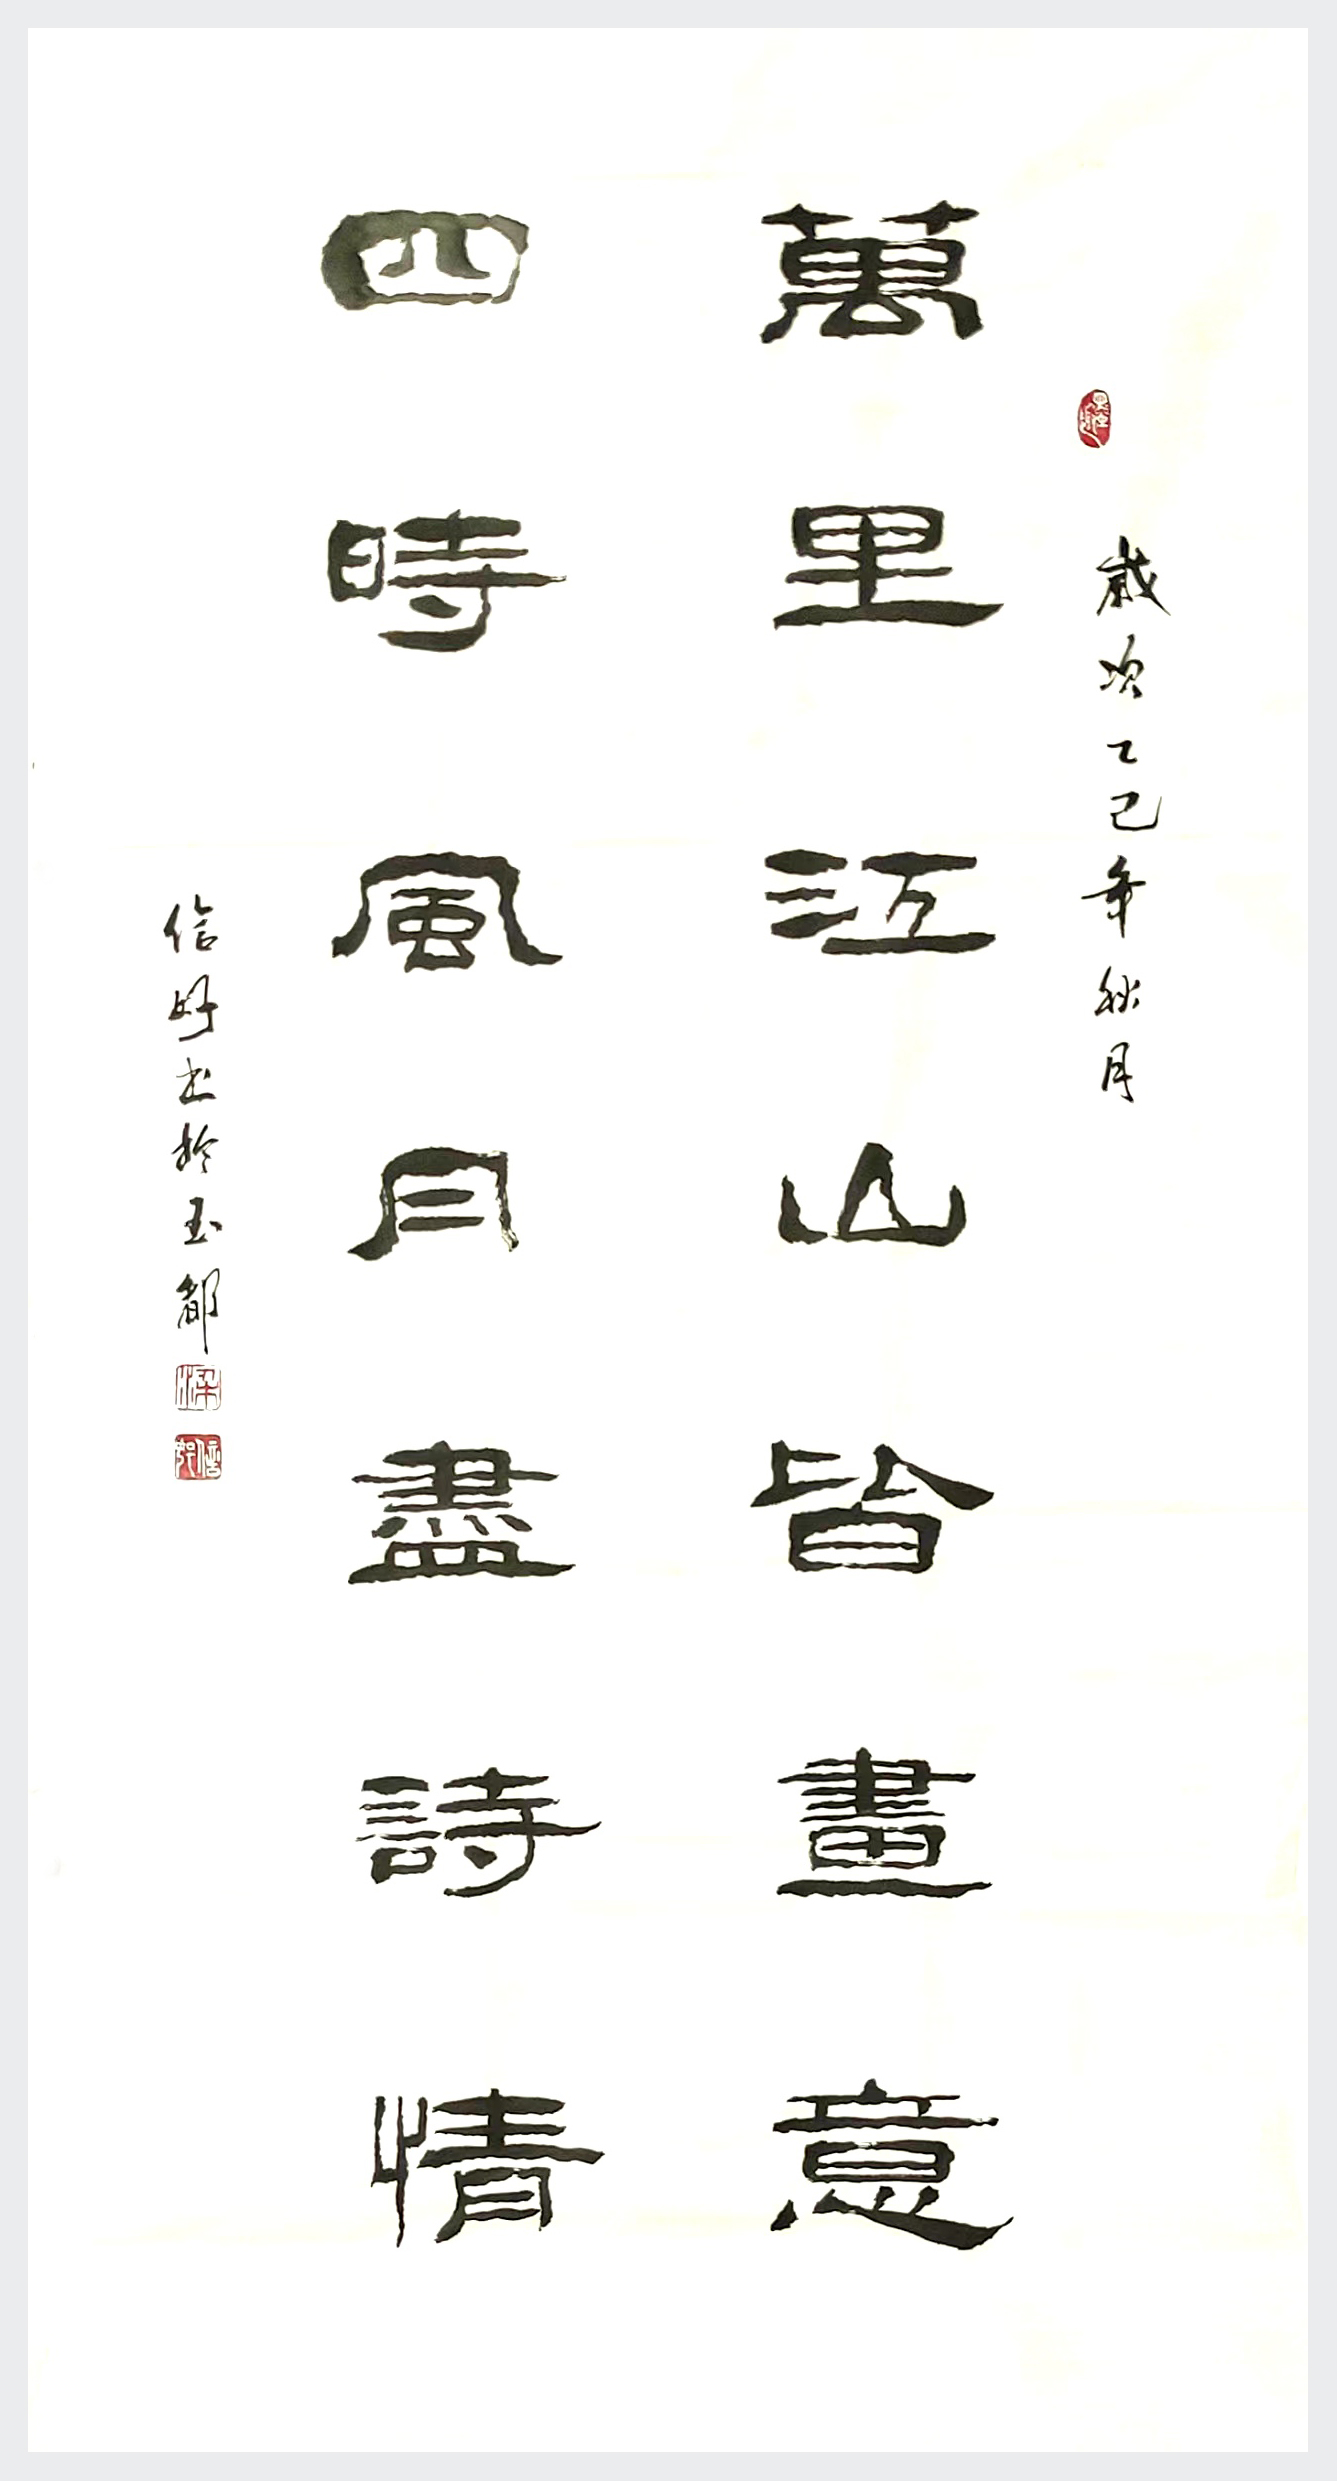 歲次乙巳年秋月
萬里江山皆畫意
四時風月盡詩情
信好書於玉都
梁
信好